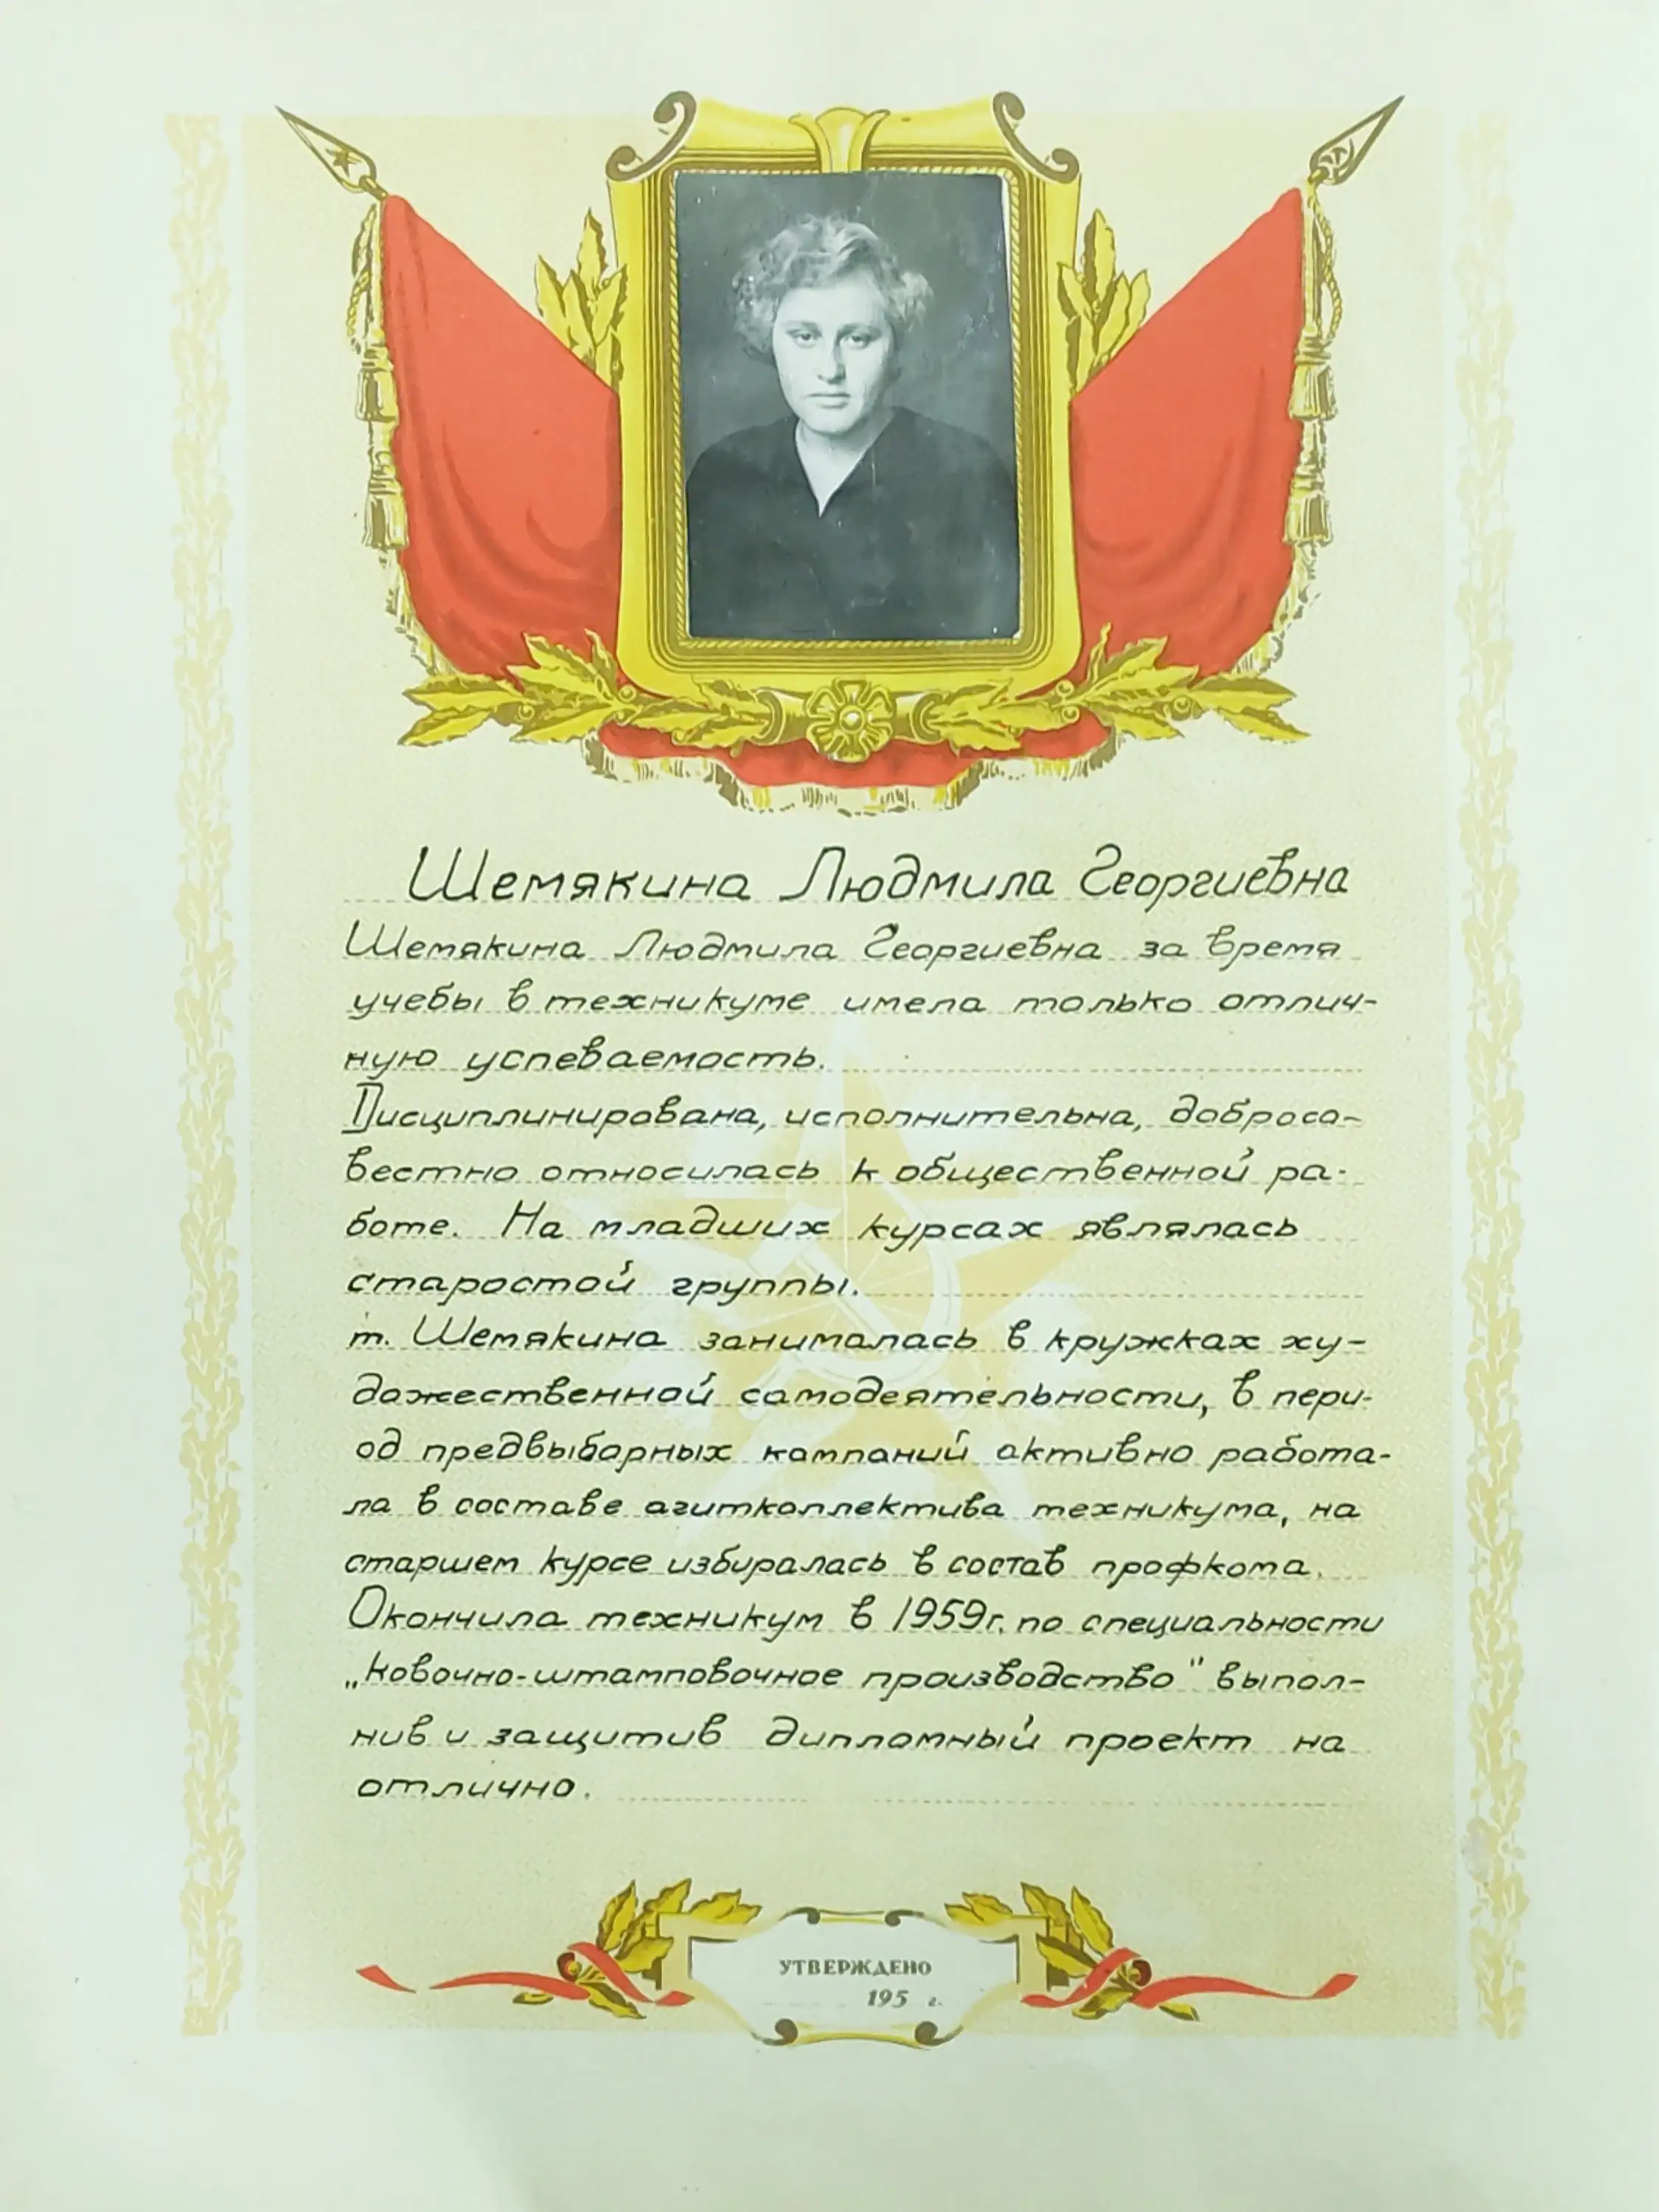 Шемякина Людмила Георгиевна
Шемякина Людмила Георгиевна за время
учебы в техникуме имела только отлич-
ную успеваемость.
Дисциплинирована, исполнительна, добросо-
вестно относилась к общественной ра-
боте. На младших курсах являлась
старостой группы.
т. Шемякина занималась в кружках ху-
дожественной самодеятельности, в пери-
од предвыборных компаний активно работа-
ла в составе агитколлектива техникума, на
старшем курсе избиралась в состав профкома.
Окончила техникум в 1959г. по специальности
„Ковочно-штамповочное производство" выпол-
нив и защитив дипломный проект на
отлично.
УТВЕРЖДЕНО
195 г.